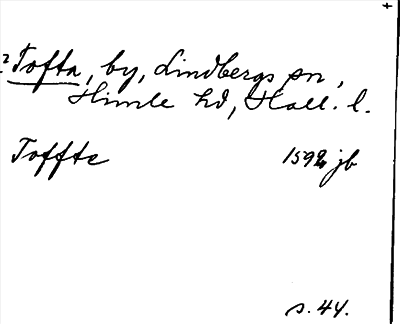 2 Tofta, by, Lindbergs sn,
Himle hd, Hall. l.
Toffte 1592 jb
s. 44.